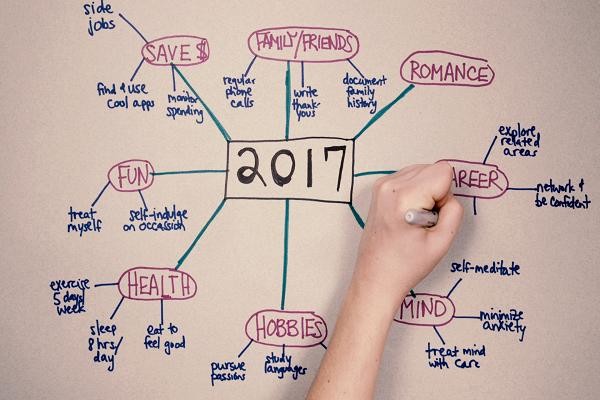 side
jobs
SAVE $
find & use
cool apps
monitor
spending
FAMILY/FRIENDS
regular
phone
calls
write
thank-
yous
document
family
history
ROMANCE
2017
explore
related
areas
AREER
network &
be confident
FUN
treat
myself
self-indulge
on occassion
HEALTH
exercise
5 days/
week
sleep
8 hrs/
day
eat to
feel good
HOBBIES
pursue
passions
study
languages
MIND
self-meditate
minimize
anxiety
treat mind
with care